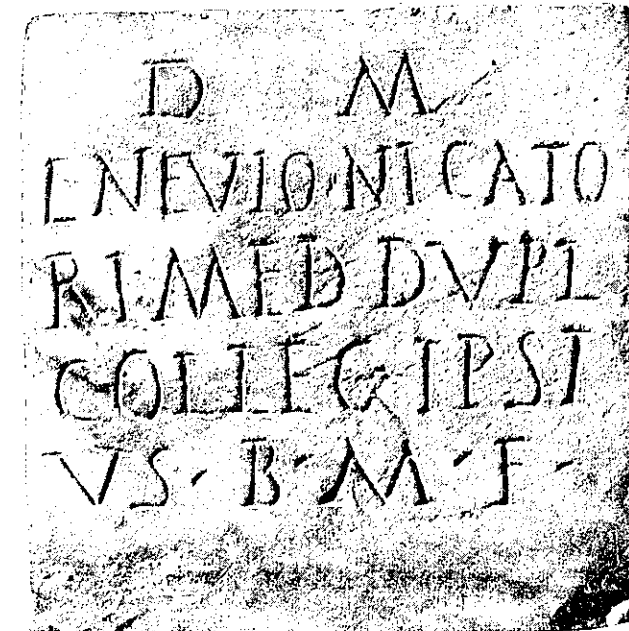 D M
L NEVIO · NICATO
RI MED DVPL
COLLEG IPSI
VS · B · M · F ·